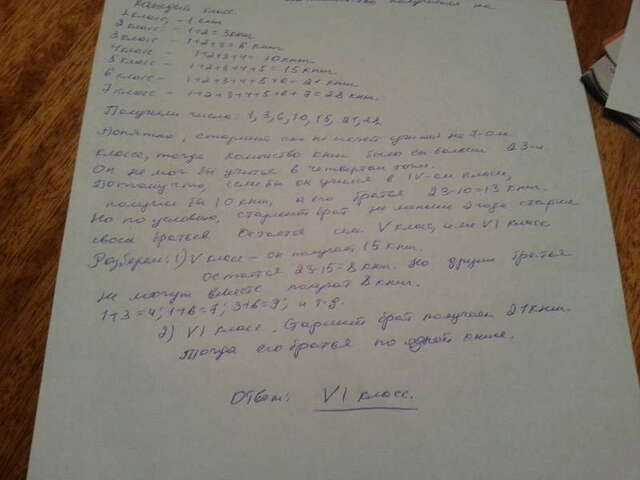 получился на
Каждый класс.
1 класс, - 1 кни
2 класс - 1+2=3 кни
3 класс - 1+2+3=6 книг.
4 класс 1+2+3+4=10 книг
5 класс - 1+2+3+4+5=15 книг.
6 класс - 1+2+3+4+5+6=21 книг.
7 класс - 1+2+3+4+5+6+7=28 книг.
Получили числа: 1, 3, 6, 10, 15, 21, 28.
Понятно, старший не может учится на 7-ом
классе, тогда количство книг было бы больше 23-х
Он не мог бы учится в четвертом тоже.
Потому что, если бы он учился в IV-ом классе,
получил бы 10 книг, а его братья 23-10=13 книг.
Но по условию, старший брат не меньше 2 года старше
своих братьев. Остается V класс, или VI класс
Разберем: 1) V класс - он получает 15 книг.
Остатся 23-15=8 книг. Но другие братья
не могут вместе получат 8 книг.
1+3=4; 1+6=7; 3+6=9; и т.д.
2) VI класс. Старший брат получает 21 книг.
Тогда его братья по одной книге.
Ответ: VI класс.